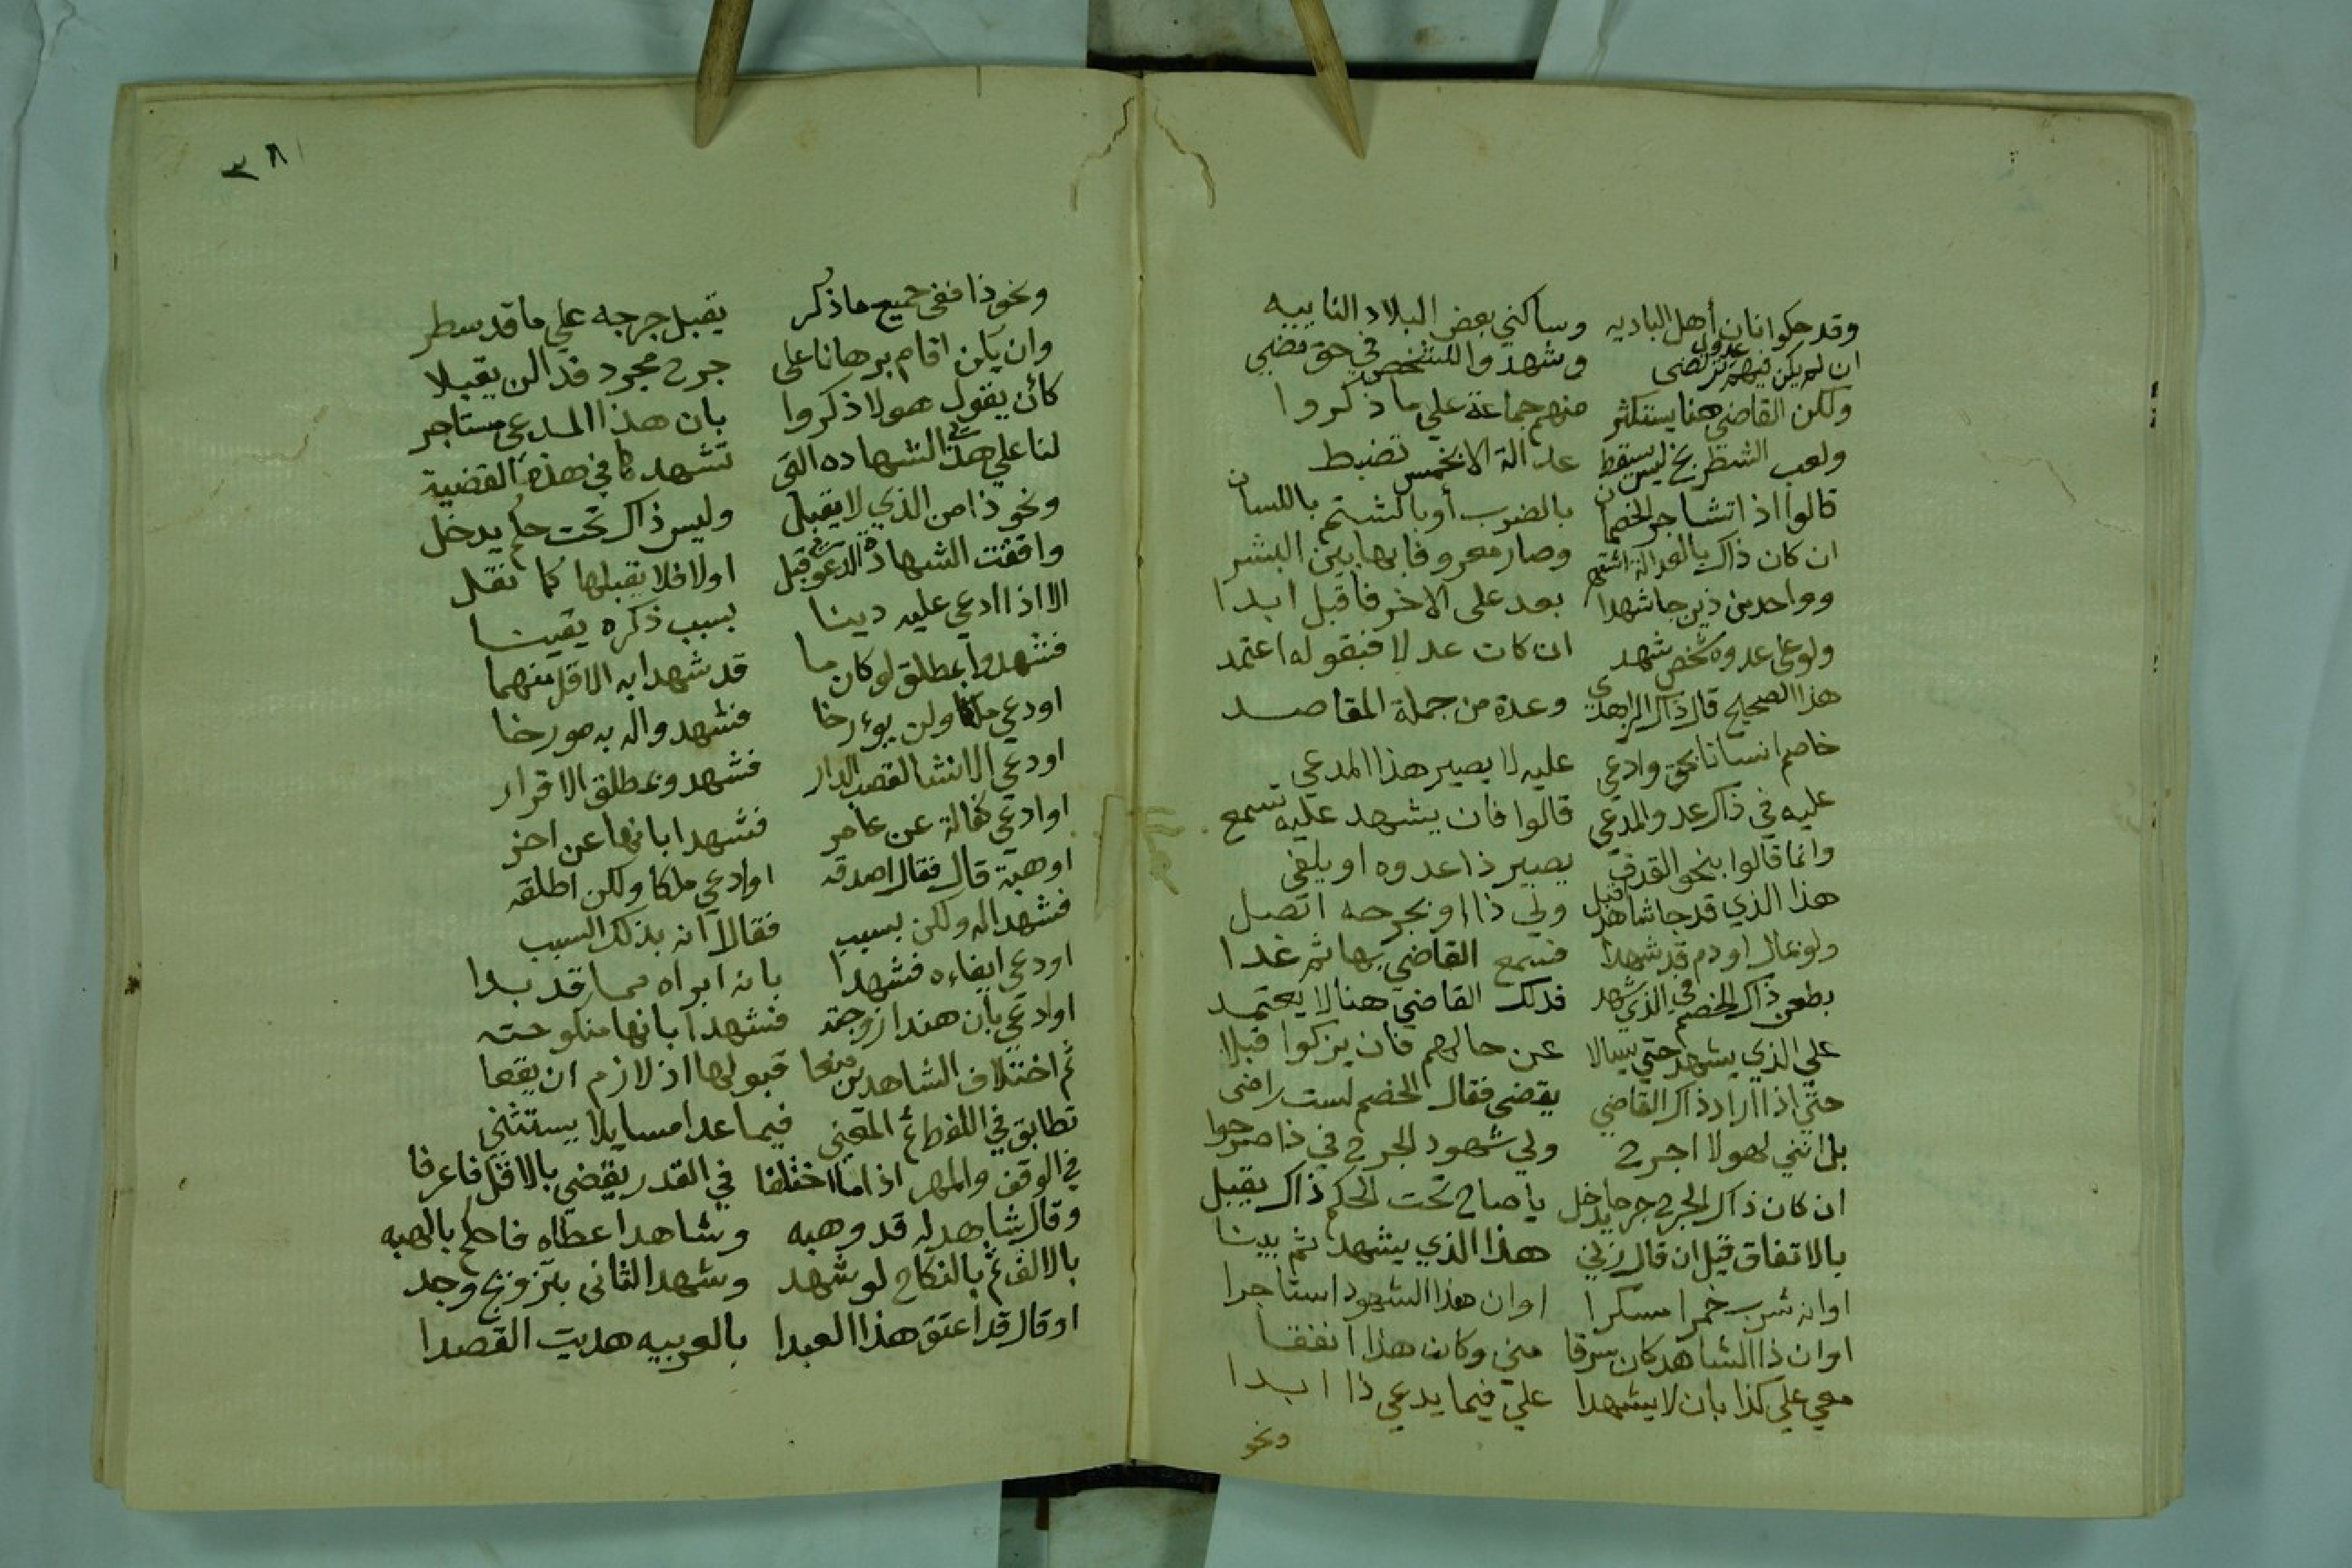 وقد حكوا ان أهل الباديه وساكني بعض البلاد النائيه
ان لم يكن فيهم عدول ترتضى وشهدوا لشخص في حق قضي
ولكن القاضي هنا يستكثر منهم جماعة علي ما ذكروا
ولعب الشطرنج ليس يسقط عدالة الا بخمس تضبط
قالوا اذا تشاجر الخصمان بالضرب أو بالشتم باللسان
ان كان ذاك بالعدالة اشتهر وصار معروفا بها بين البشر
وواحد من ذين جا شهدا بعد على الاخر فاقبل ابدا
ولو على عدوه شخص شهد ان كان عدلا فبقوله اعتمد
هذا الصحيح قال ذاك الزاهدي وعده من جملة المقاصد
خاصم انسانا بحق وادعي عليه لا يصير هذا المدعي
عليه في ذاك عدو المدعي قالوا فان يشهد عليه تسمع
وانما قالوا بنحو القذف يصير ذا عدوه او يلفي
هذا الذي قد جا شاهد اقبل ولي ذا او بجرحه اتصل
ولو بمال او دم قد شهدا فسمع القاضي بها ثم غدا
بطعن ذاك الخصم في الذي شهد فذلك القاضي هنا لا يعتمد
علي الذي يشهد حتي يسالا عن حالهم فان يزكوا قبلا
حتي اذا اراد ذاك القاضي يقضي فقال الخصم لست راضى
بل انني لهولا اجرح ولي شهود الجرح في ذا صرحوا
ان كان ذاك الجرح جرحا يدخل يا صاح تحت الحكم ذاك يقبل
بالاتفاق قيل ان قال زني هذا الذي يشهد ثم بينا
او انه شرب خمرا مسكرا او ان هذا الشهود استاجرا
او ان ذا الشاهد كان سرقا مني وكان هذا انفقا
معي علي كذا بان لا يشهدا علي فيما يدعي ذا ابدا
ونحو
٣٨
ونحو ذا ففي جميع ما ذكر يقبل جرحه علي ما قد سطر
وان يكن اقام برهانا على جرح مجرد فذا لن يقبلا
كأن يقول هولا ذكروا بان هذا المدعي مستاجر
لنا علي هذي الشهاده التي تشهدكا في هذه القضية
ونحو ذا من الذي لا يقبل وليس ذاك تحت حكم يدخل
وافقت الشهادة الدعوى قبل اولا فلا يقبلها كما نقل
الا اذا ادعي عليه دينا بسبب ذكره يقينا
فشهدوا بمطلق لو كان ما قد شهدا به الاقل منهما
او دعي ملكا ولن يوءرخا فشهدوا له به مورخا
او دعي الانشا لغصب الدار فشهدو بمطلق الاقرار
او ادعي كفالة عن عامر فشهدا بانها عن اخر
او هبة قال فقال اصدقه او ادعي ملكا ولكن اطلقه
فشهدا له ولكن بسبب فقالا انه بذلك السبب
او دعي ايفاءه فشهدا بانه ابراه مما قد بدا
او ادعي بأن هندا زوجته فشهدا بانها منكوحته
ثم اختلاف الشاهدين منعا قبولها اذ لازم ان يقعا
تطابق في اللفظ ثم المعني فيما عدا مسايلا يستثني
في الوقف والمهر اذا ما اختلفا في القدر يقضي بالاقل فاعرفا
وقال شاهد له قد وهبه وشاهد اعطاه فاحكم بالهبه
بالالف ثم بالنكاح لو شهد وشهد الثاني بتزويج وجد
او قال قد اعتق هذا العبدا بالعربيه هديت القصدا